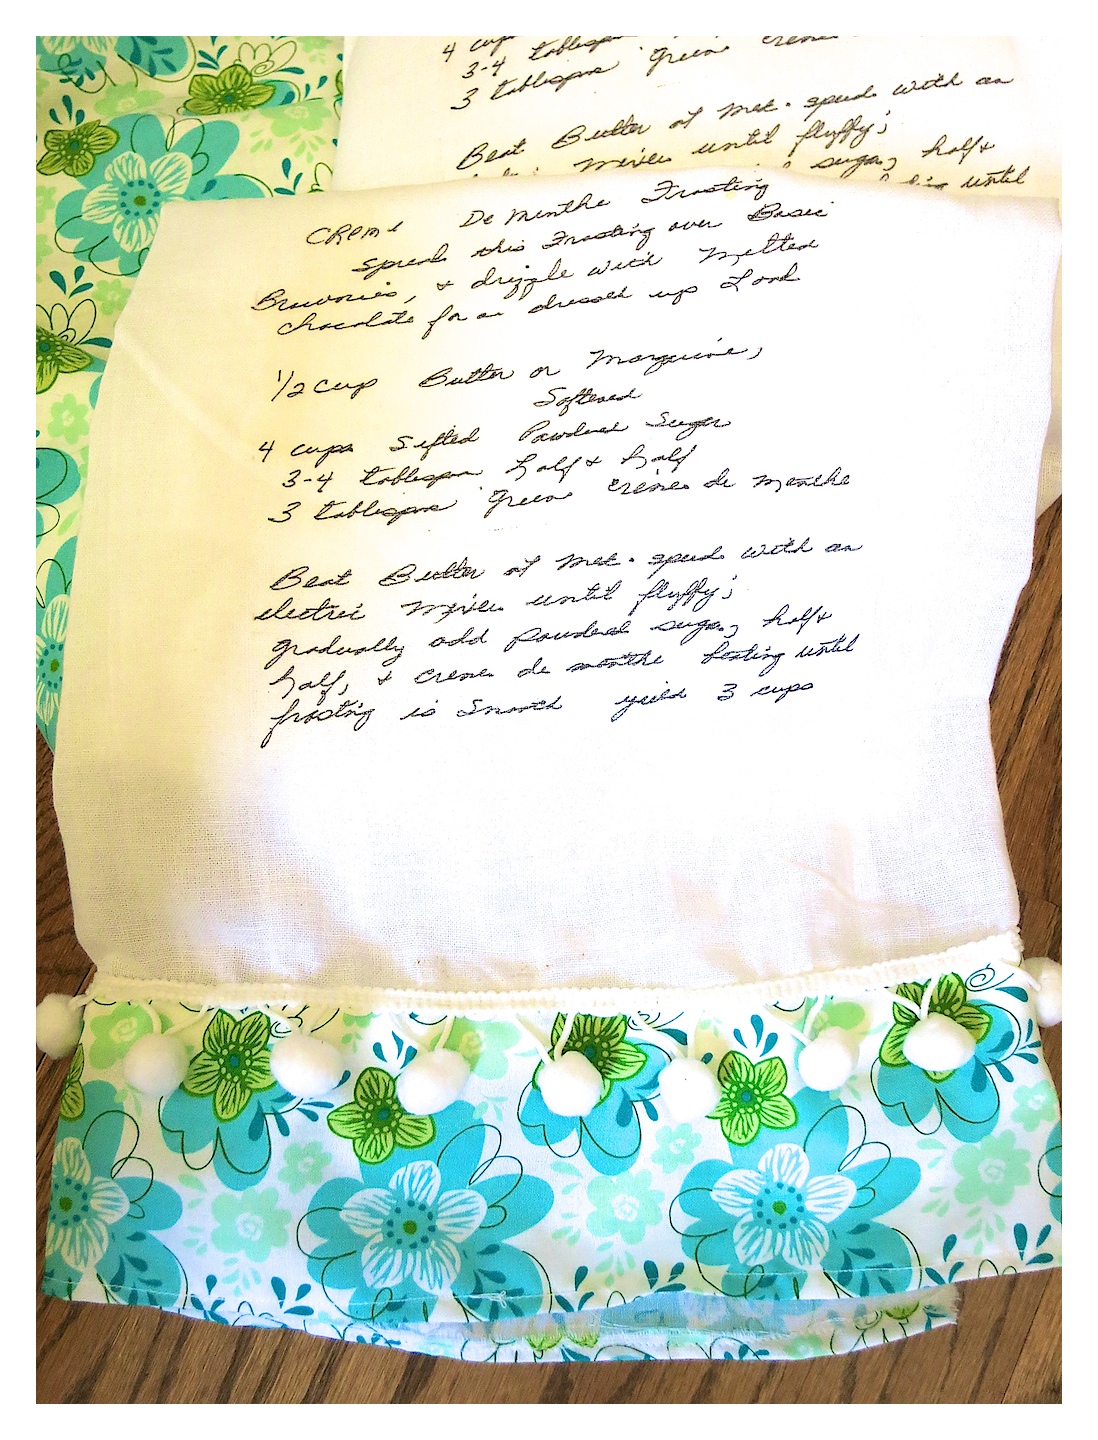 4 cups
3-4 tablespn
3 tablespns Green creme
Beat Butter at Med. speed with an
Mixer until fluffy;
sugar, half +
until
CREME De Menthe Frosting
spread this Frosting over Basic
Brownies, + drizzle with Melted
chocolate for a dressed up Look
1/2 cup Butter or Margarine,
Softened
4 cups Sifted Powdered Sugar
3-4 tablespn half + half
3 tablespns Green creme de menthe
Beat Butter at Med. speed with an
electric Mixer until fluffy;
gradually add powdered sugar, half +
half, + creme de menthe beating until
frosting is Smooth yield 3 cups